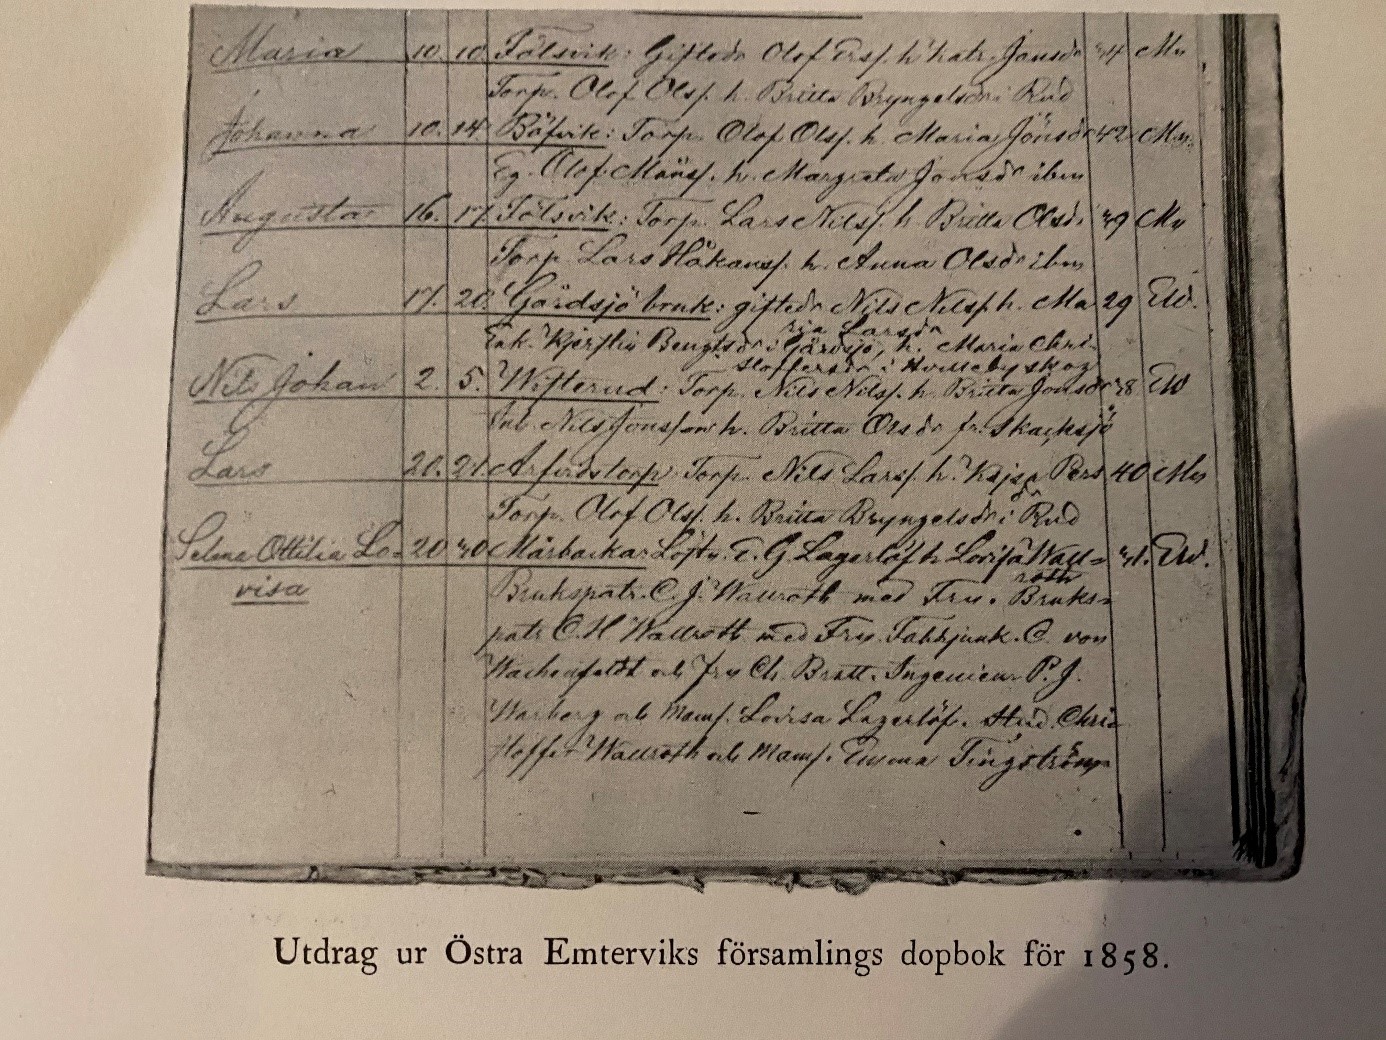 Maria 10. 10. Fölsvik: Giftedr Olof Ersf. h. Katr. Jonsdr 34 Mn
Torp. Olof Olsf. h. Britta Bryngelsdr i Rud
Johanna 10. 14. Böfvik: Torp. Olof Olsf. h. Maria Jönsdr 42 Mn.
Eg. Olof Månsf. h. Margreta Jonsdr ibm
Augusta 16. 17. Fölsvik: Torp. Lars Nilsf. h. Britta Olsdr 39 Mn
Torp. Lars Håkansf. h. Anna Olsdr ibm
Lars 17. 20. Gårdsjö bruk: giftedr Nils Nilsf. h. Ma- 29 EW.
ria Larsdr
Enk. Kjerstin Bengtsdr i Gårdsjö, h. Maria Chri-
stoffersdr i
Nils Johan 2. 5. Wisterud: Torp. Nils Nilsf. h. Britta Jonsdr 38 EW
Nils Jonsson h. Britta Olsdr fr. Skacksjö
Lars 20. 21. Arfvidstorp: Torp. Nils Larsf. h. Kajsa Persdr 40 Mn
Torp. Olof Olsf. h. Britta Bryngelsdr i Rud
Selma Ottilia Lo- 20 30 Mårbacka: Löjtn. E. G. Lagerlöf h. Lovisa Wall- 31. EW.
visa roth
Brukspatr. C. J. Wallroth med Fru. Bruks-
patr C. H. Wallroth med Fru. Fahnjunk. C. von
Wachenfeldt och Fru Ch. Bratt. Ingenieur P. J.
Warberg och Mamf. Lovisa Lagerlöf. Stud. Chri-
stoffer Wallroth och Mamf. Emma Tingström
Utdrag ur Östra Emterviks församlings dopbok för 1858.